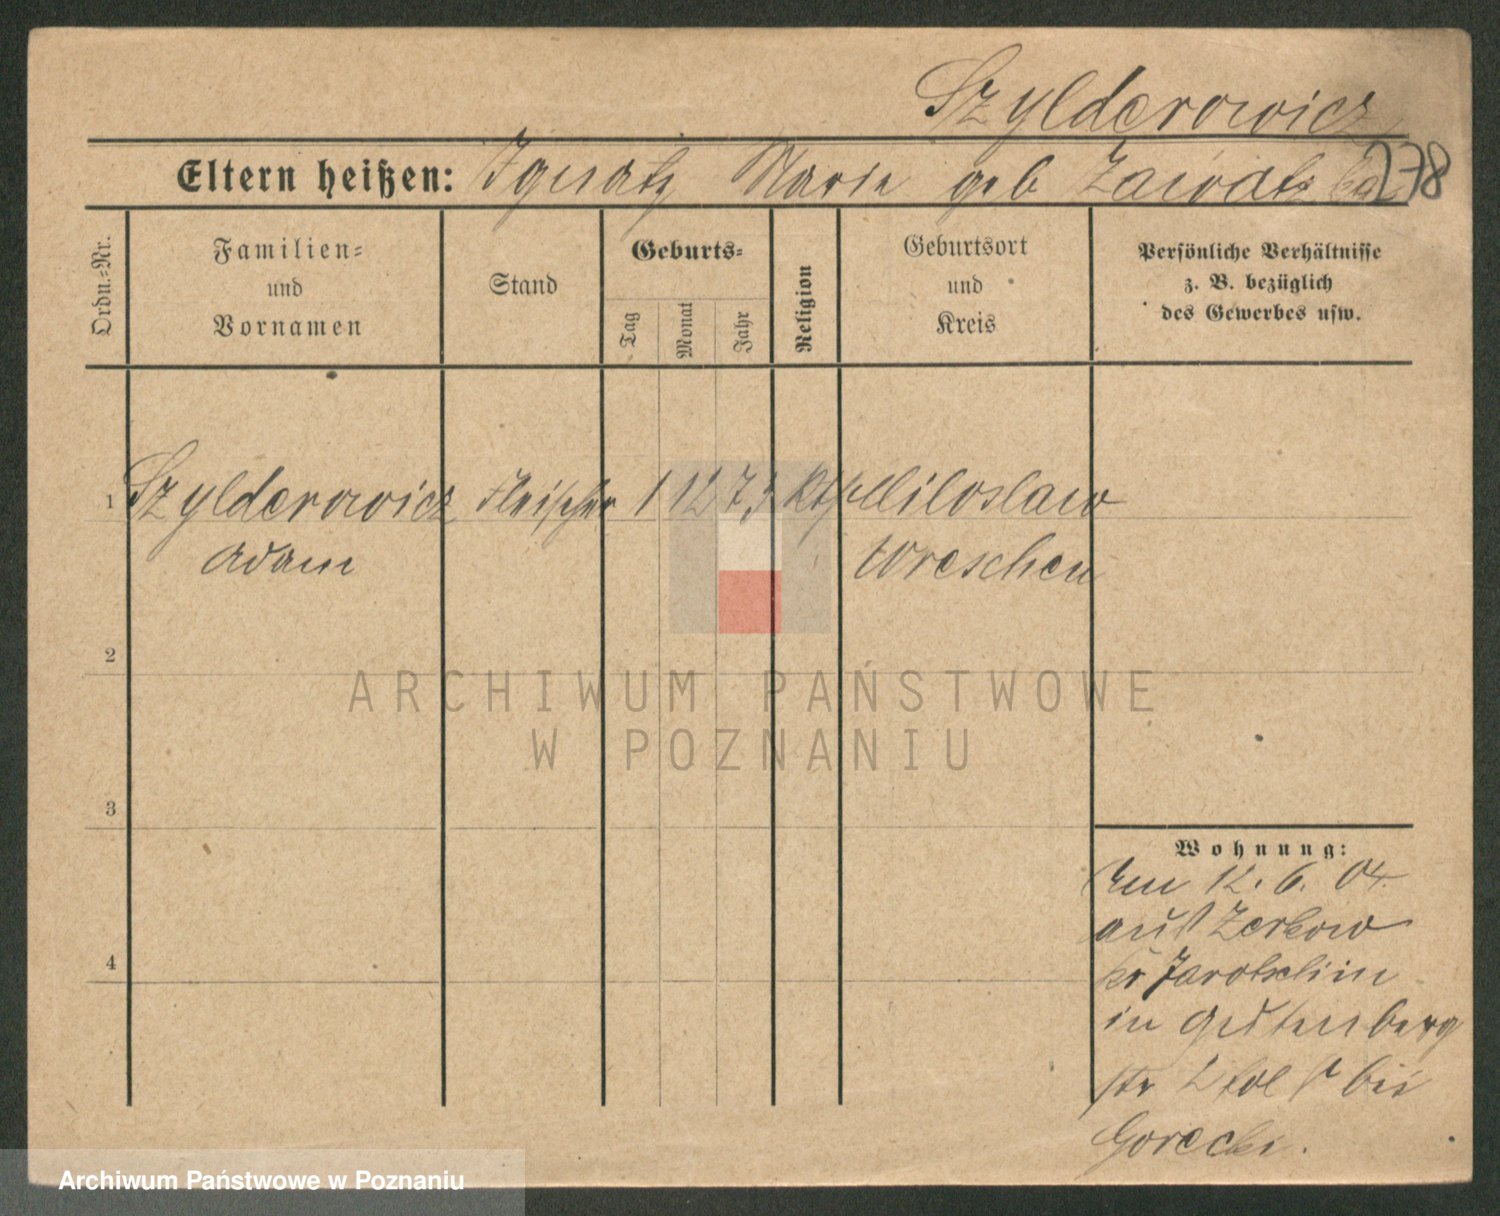 Szylderowicz
278
Eltern heißen: Ignatz Marie geb Zawatzka
Ordn.=Nr.
Familien=
und
Vornamen
Stand
Geburts=
Tag
Monat
Jahr
Religion
Geburtsort
und
Kreis
Persönliche Verhältnisse
z. B. bezüglich
des Gewerbes usw.
1 Szylderowicz Fleischer 1 12 73 kth Miloslaw
Adam Wreschen
2
3
4
Wohnung:
Am 12. 6. 04.
aus Zerkow
kr Jarotschin
in Gutenberg
str bei
Gorecki.
ARCHIWUM PAŃSTWOWE
W POZNANIU
Archiwum Państwowe w Poznaniu